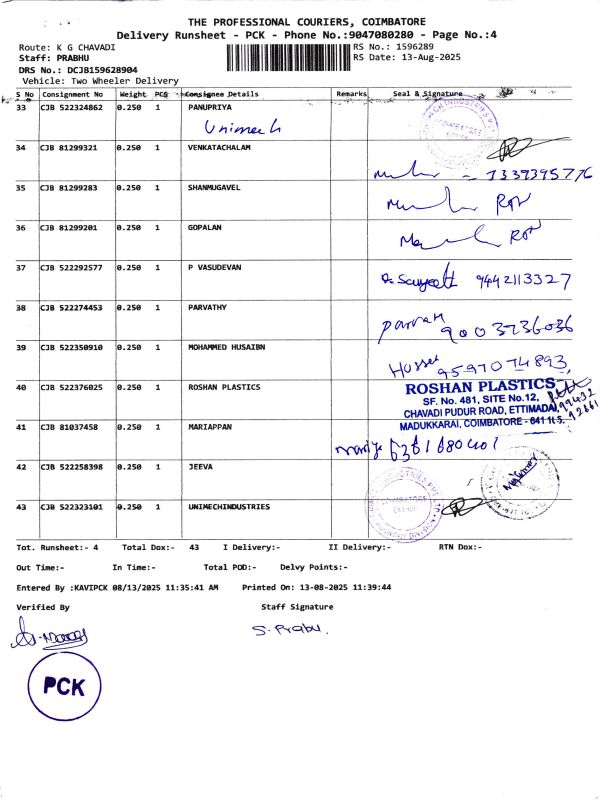 THE PROFESSIONAL COURIERS, COIMBATORE
Delivery Runsheet - PCK - Phone No.:9047080280 - Page No.:4
Route: K G CHAVADI RS No.: 1596289
Staff: PRABHU RS Date: 13-Aug-2025
DRS No.: DCJB159628904
Vehicle: Two Wheeler Delivery
S No Consignment No Weight PCS Consignee Details Remarks Seal & Signature
33 CJB 522324862 0.250 1 PANUPRIYA
Unimech
34 CJB 81299321 0.250 1 VENKATACHALAM
35 CJB 81299283 0.250 1 SHANMUGAVEL
36 CJB 81299201 0.250 1 GOPALAN
37 CJB 522292577 0.250 1 P VASUDEVAN 9442113327
38 CJB 522274453 0.250 1 PARVATHY
9003736036
39 CJB 522350910 0.250 1 MOHAMMED HUSAIBN
9597074893
40 CJB 522376025 0.250 1 ROSHAN PLASTICS ROSHAN PLASTICS
SF. No. 481, SITE No.12,
CHAVADI PUDUR ROAD, ETTIMADAI,
MADUKKARAI, COIMBATORE - 641 105.
41 CJB 81037458 0.250 1 MARIAPPAN
42 CJB 522258398 0.250 1 JEEVA
43 CJB 522323101 0.250 1 UNIMECHINDUSTRIES
Tot. Runsheet:- 4 Total Dox:- 43 I Delivery:- II Delivery:- RTN Dox:-
Out Time:- In Time:- Total POD:- Delvy Points:-
Entered By :KAVIPCK 08/13/2025 11:35:41 AM Printed On: 13-08-2025 11:39:44
Verified By Staff Signature
S. Prabu.
PCK